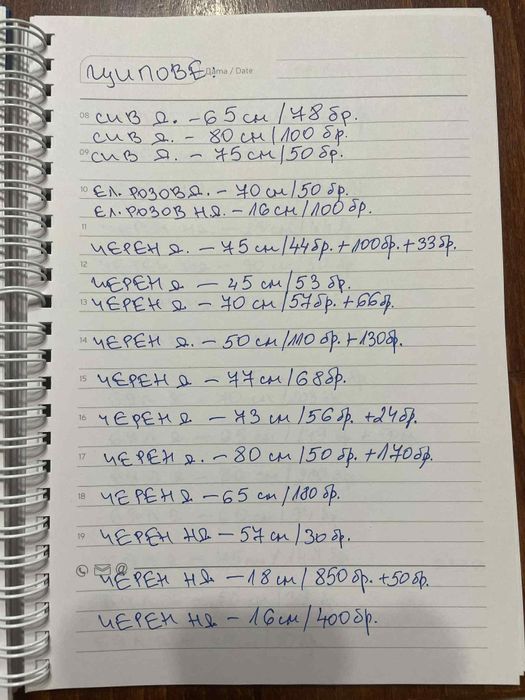 ЦИПОВЕ:
Дата / Date
08 СИВ Д. - 65 см / 78 бр.
СИВ Д. - 80 см / 100 бр.
09 СИВ Д. - 75 см / 50 бр.
10 ЕЛ. РОЗОВ Д. - 70 см / 50 бр.
ЕЛ. РОЗОВ НД. - 16 см / 100 бр.
11
ЧЕРЕН Д. - 75 см / 44 бр. + 100 бр. + 33 бр.
12
ЧЕРЕН Д - 45 см / 53 бр.
13 ЧЕРЕН Д - 70 см / 57 бр. + 66 бр.
14 ЧЕРЕН Д. - 50 см / 110 бр. + 130 бр.
15 ЧЕРЕН Д - 77 см / 68 бр.
16 ЧЕРЕН Д - 73 см / 56 бр. + 24 бр.
17 ЧЕРЕН Д. - 80 см / 50 бр. + 170 бр.
18 ЧЕРЕН Д - 65 см / 180 бр.
19 ЧЕРЕН НД - 57 см / 30 бр.
ЧЕРЕН НД - 18 см / 850 бр. + 50 бр.
ЧЕРЕН НД - 16 см / 400 бр.